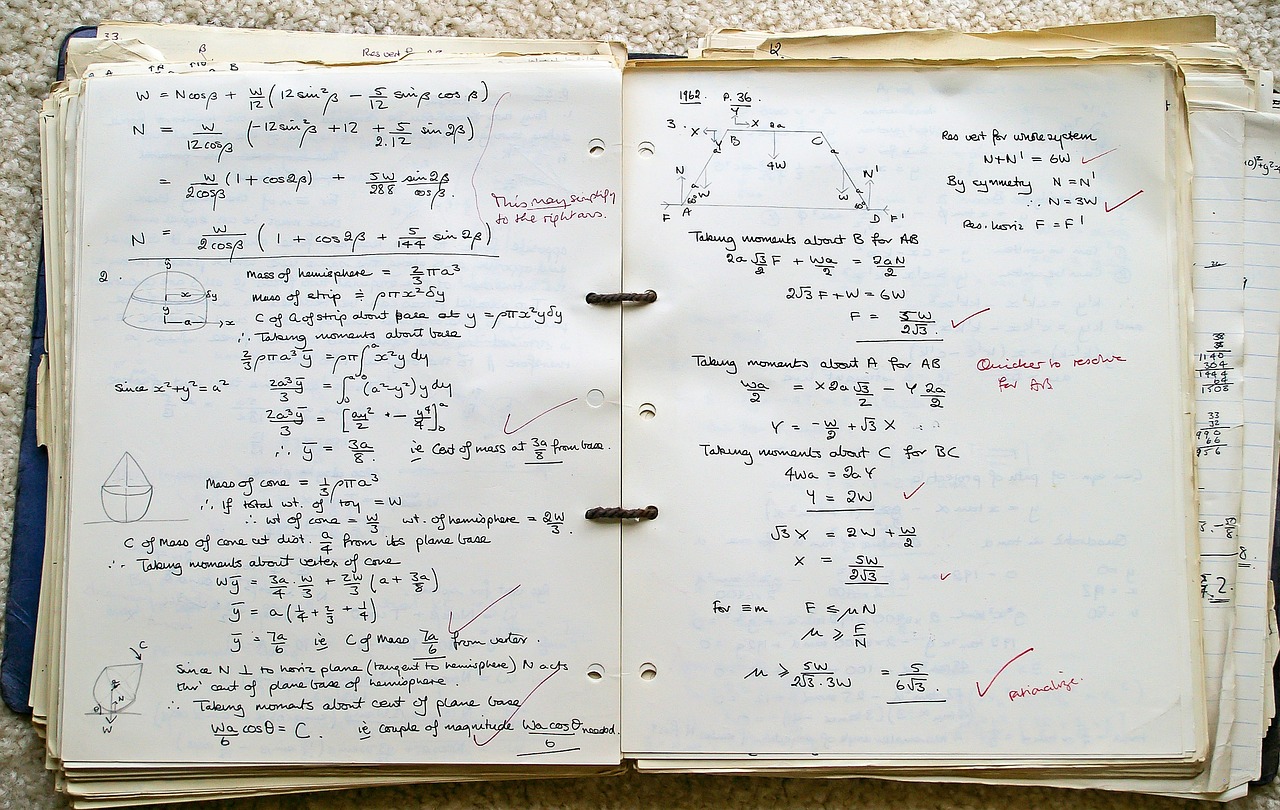 33.
β
Res vert
B
W = Ncosβ + W/12 (12sin²β − 5/12 sinβ cosβ)
N = W/12cosβ (−12sin²β + 12 + 5/2.12 sin2β)
= W/2cosβ (1 + cos2β) + 5W/288 sin2β/cosβ.
This may simplify
to the right ans.
N = W/2cosβ (1 + cos2β + 5/144 sin2β)
2.
y
x δy
y
a x
Mass of hemisphere = 2/3 πa³
Mass of strip ≑ ρπx²δy
C of G of strip about base at y = ρπx²yδy
∴ Taking moments about base
2/3 ρπa³ȳ = ρπ∫₀ᵃ x²y dy
Since x²+y²=a² 2a³ȳ/3 = ∫₀ᵃ (a²−y²)y dy
2a³ȳ/3 = [ay²/2 − y⁴/4]₀ᵃ
∴ ȳ = 3a/8 ie Cent of mass at 3a/8 from base.
Mass of cone = 1/3 ρπa³
∴ If total wt. of toy = W
∴ wt of cone = W/3 wt. of hemisphere = 2W/3.
C of Mass of cone at dist. a/4 from its plane base
∴ Taking moments about vertex of cone
Wȳ = 3a/4 · W/3 + 2W/3 (a + 3a/8)
ȳ = a(1/4 + 2/3 + 1/4)
ȳ = 7a/6 ie C of Mass 7a/6 from vertex.
C
N
θ
W
Since N ⊥ to horiz plane (tangent to hemisphere) N acts
thro' cent of plane base of hemisphere.
∴ Taking moments about cent of plane base
Wa/6 cosθ = C. ie couple of magnitude Wa cosθ/6 needed.
62.
1962. P. 36.
3. X Y X 2a
B C
a Y 4W a
N a W W a N'
60° 60°
F A D F'
Res vert for whole system
N+N' = 6W
By symmetry N = N'
∴ N = 3W
Res. horiz F = F'
Taking moments about B for AB
2a √3/2 F + Wa/2 = 2aN/2
2√3 F + W = 6W
F = 5W/2√3.
Taking moments about A for AB
Quicker to resolve
for AB
Wa/2 = X 2a √3/2 − Y 2a/2
Y = −W/2 + √3 X
Taking moments about C for BC
4Wa = 2aY
Y = 2W
√3 X = 2W + W/2
X = 5W/2√3
For ≡m F ≤ μN
μ ≥ F/N
μ ≥ 5W/2√3.3W = 5/6√3.
rationalize.
38
38
1140
304
1444
64
1508
33
32
990
66
956
8.
2.